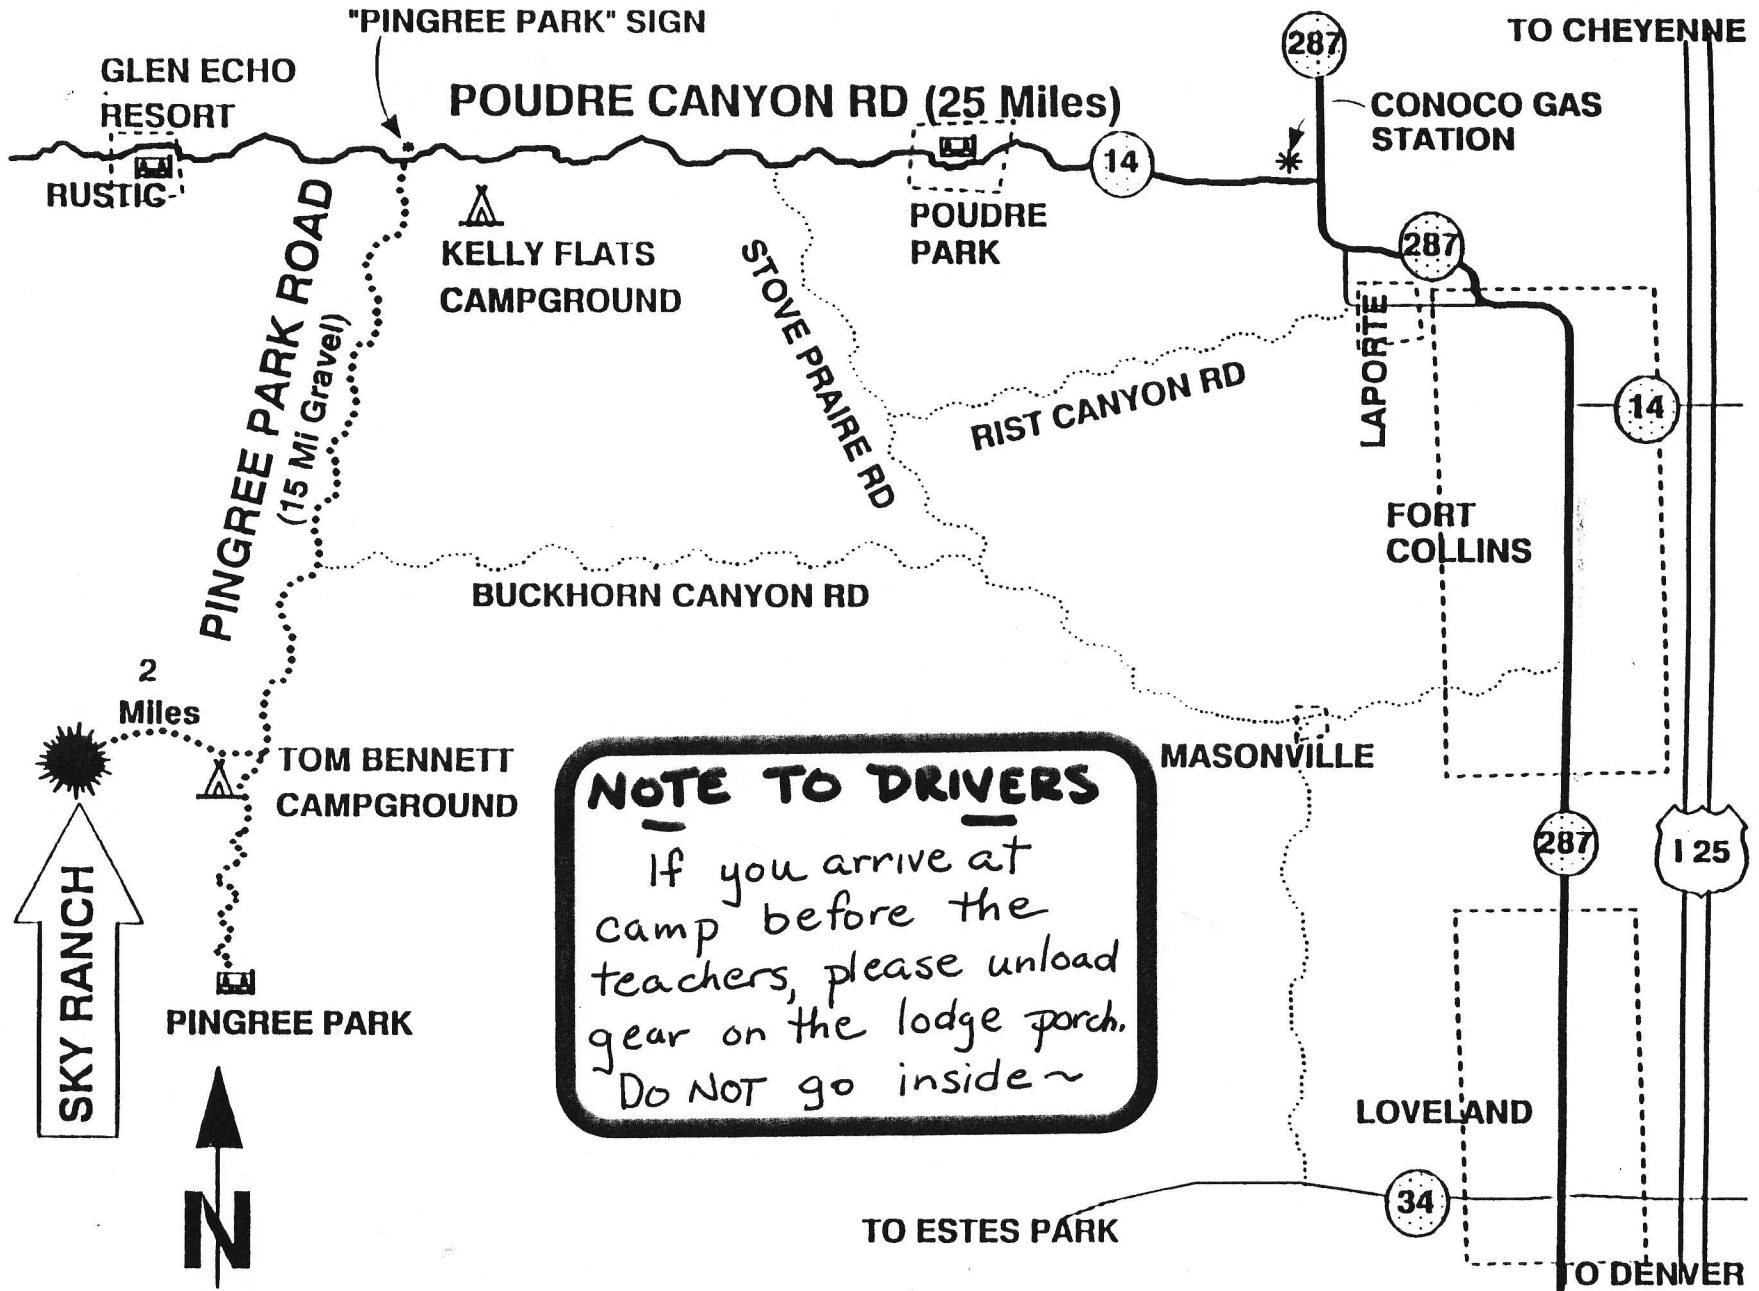 "PINGREE PARK" SIGN
287
TO CHEYENNE
GLEN ECHO
RESORT
POUDRE CANYON RD (25 Miles)
CONOCO GAS
STATION
14
RUSTIC
POUDRE
PARK
KELLY FLATS
CAMPGROUND
287
PINGREE PARK ROAD
(15 Mi Gravel)
STOVE PRAIRE RD
RIST CANYON RD
LAPORTE
14
FORT
COLLINS
BUCKHORN CANYON RD
2
Miles
TOM BENNETT
CAMPGROUND
MASONVILLE
NOTE TO DRIVERS
If you arrive at
camp before the
teachers, please unload
gear on the lodge porch.
Do NOT go inside~
287
I 25
SKY RANCH
PINGREE PARK
N
LOVELAND
34
TO ESTES PARK
TO DENVER